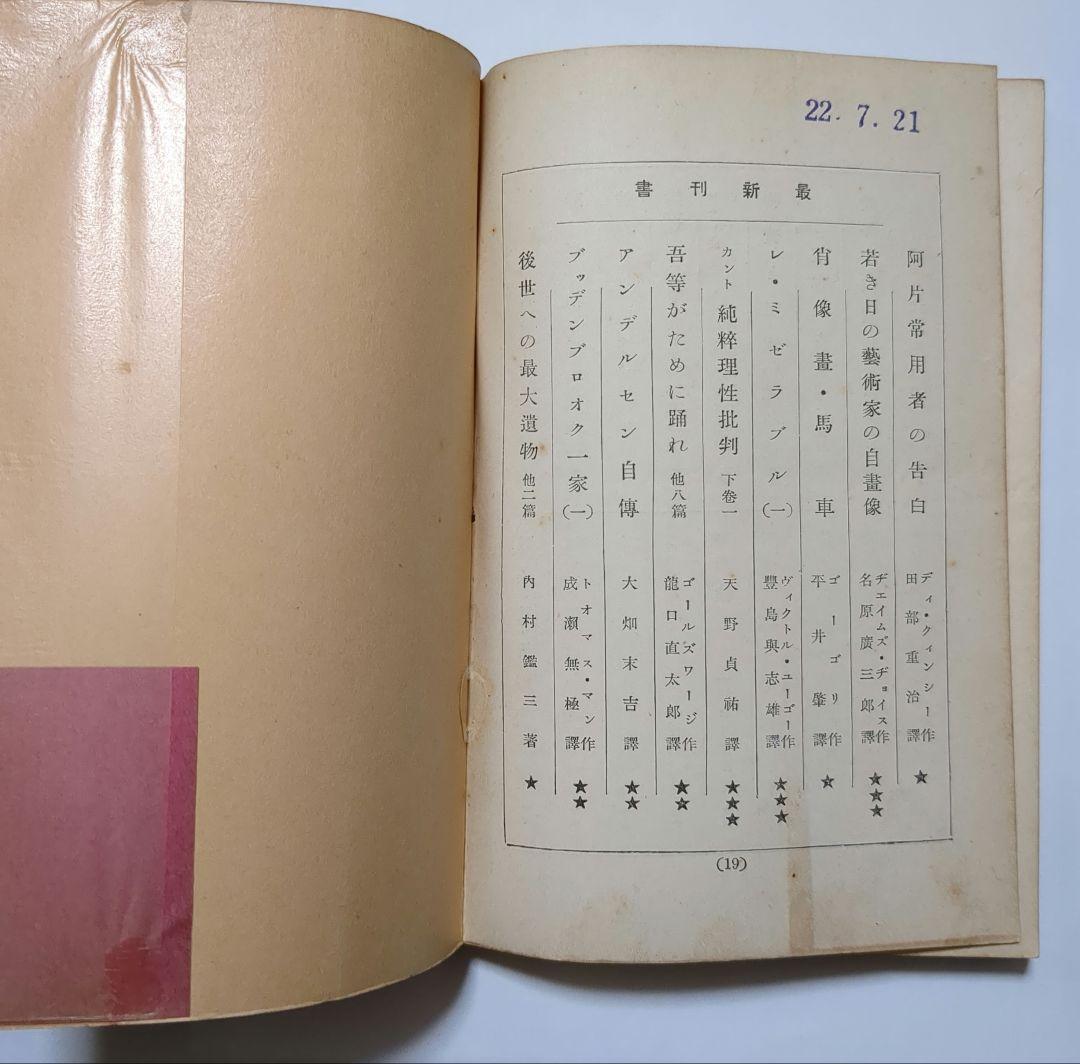 22. 7. 21
最新刊書
阿片常用者の告白 ディ・クィンシー作 田部重治譯 ★
若き日の藝術家の自畫像 ヂェイムズ・ヂョイス作 名原廣三郎譯 ★★★
肖像畫・馬車 ゴーゴリ作 平井肇譯 ★
レ・ミゼラブル(一) ヴィクトル・ユーゴー作 豐島與志雄譯 ★★★
カント 純粹理性批判 下卷一 天野貞祐譯 ★★★
吾等がために踊れ 他八篇 ゴールズワージ作 龍口直太郎譯 ★★
アンデルセン自傳 大畑末吉譯 ★★
ブッデンブロオク一家(一) トオマス・マン作 成瀨無極譯 ★★
後世への最大遺物 他二篇 內村鑑三著 ★
(19)